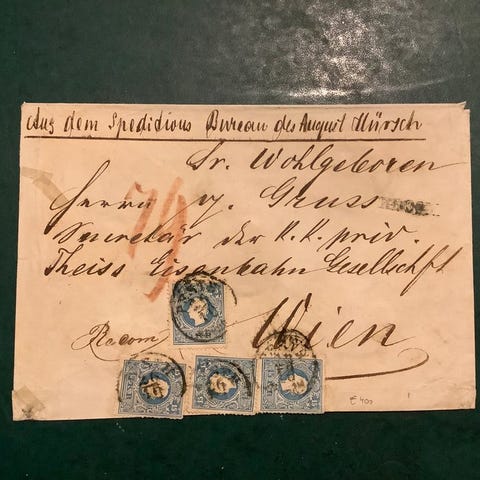 Aus dem Speditions Bureau des August Hürsch
Sr. Wohlgeboren
Herrn v. Gruss
Secretär der K. K. priv.
Theiss Eisenbahn Gesellschft
Wien
Recom
£ 400